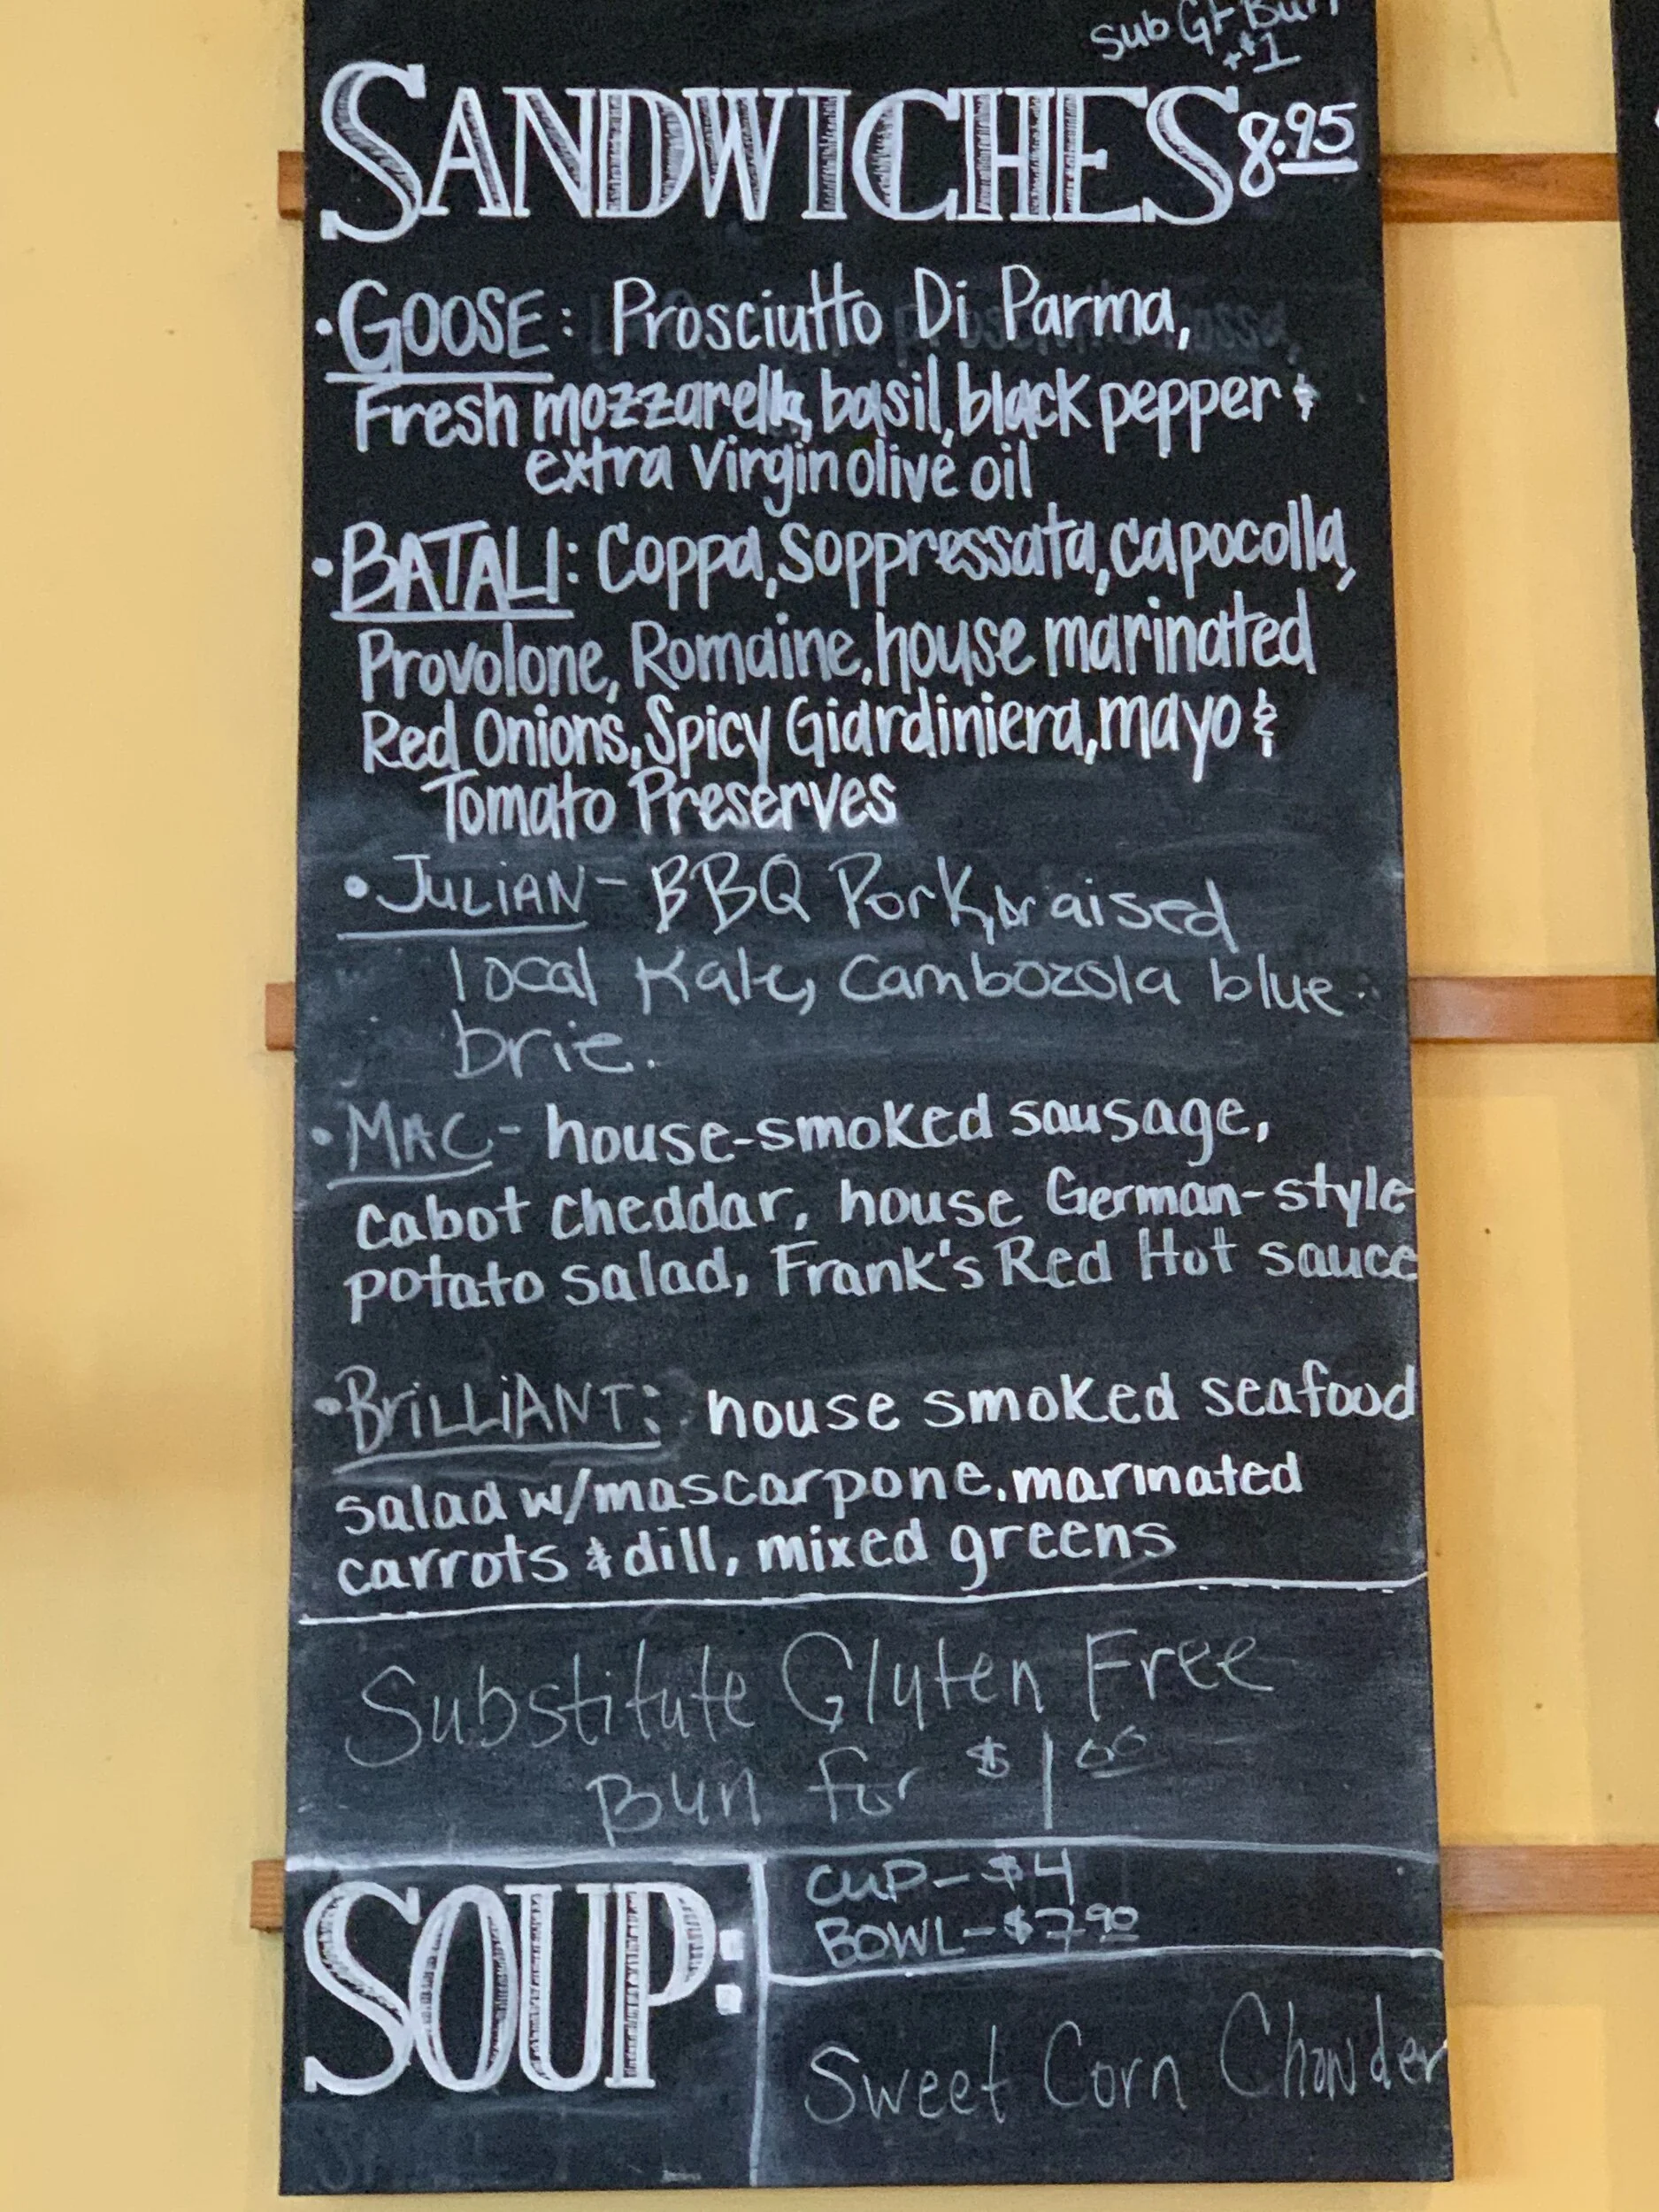 Sub GF Bun
+$1
SANDWICHES 8.95
• GOOSE: Prosciutto Di Parma,
Fresh mozzarella, basil, black pepper &
extra virgin olive oil
• BATALI: Coppa, Soppressata, capocolla,
Provolone, Romaine, house marinated
Red Onions, Spicy Giardiniera, mayo &
Tomato Preserves
• JULIAN - BBQ Pork, braised
local Kale, Cambozola blue
brie.
• MAC - house-smoked sausage,
cabot cheddar, house German-style
potato salad, Frank's Red Hot sauce
• BRiLLiANT: house smoked seafood
salad w/mascarpone, marinated
carrots & dill, mixed greens
Substitute Gluten Free
Bun for $1.00
SOUP:
CUP - $4
BOWL - $7.90
Sweet Corn Chowder